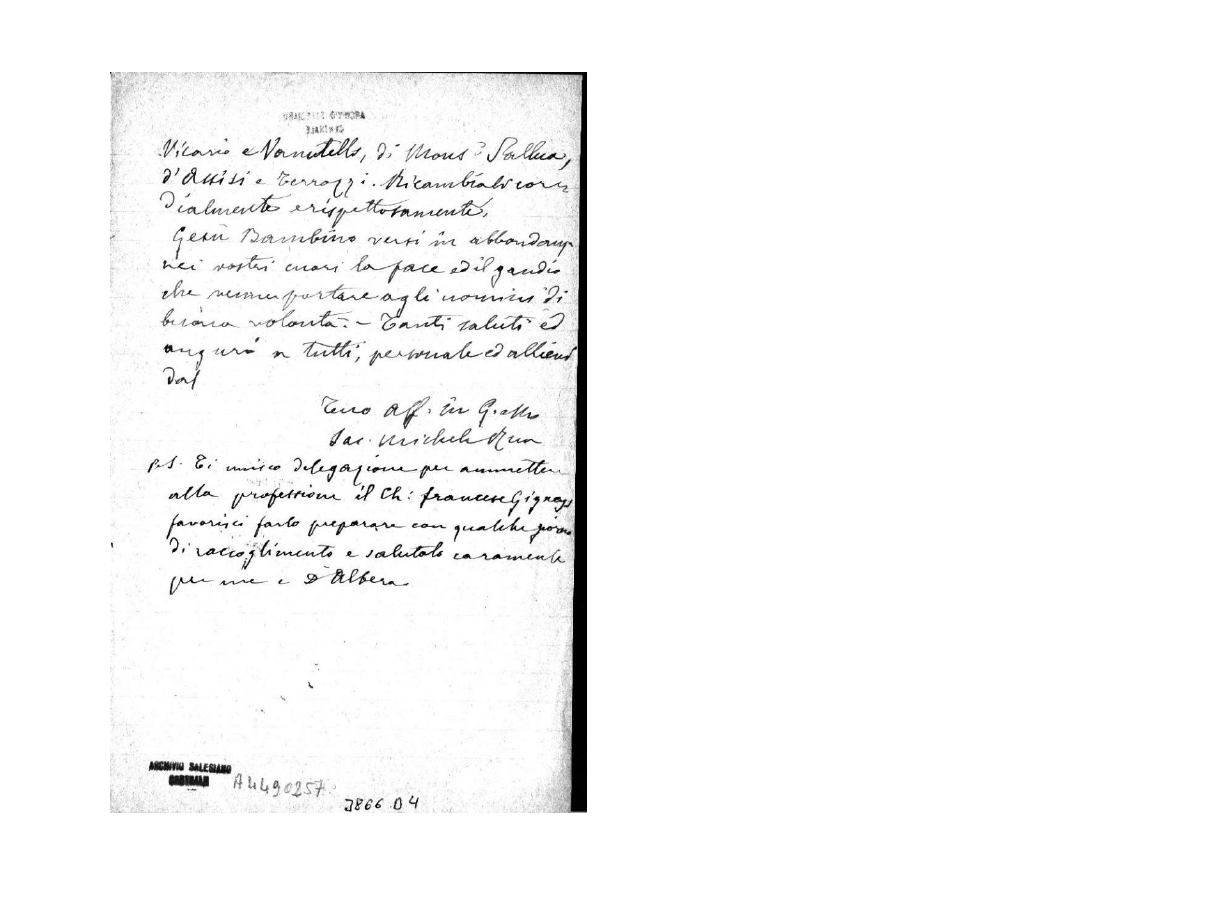 Vicario e Vanutelli, di Mons.r Sallua,
d'Assisi e Terrazzi. Ricambiali cor-
dialmente e rispettosamente.
Gesù Bambino versi in abbondanz
nei vostri cuori la pace ed il gaudio
che venne portare agli uomini di
buona volontà. - Tanti saluti ed
auguri a tutti, personale ed allievi
dal
Tuo aff. in G. e M.
Sac. Michele Rua
P.S. Ti unisco delegazione per ammettere
alla professione il Ch: francesc
favorisci farlo preparare con qualche giorno
di raccoglimento e salutalo caramente
per me e D. Albera
ARCHIVIO SALESIANO
CENTRALE
A4490257
3866 D 4